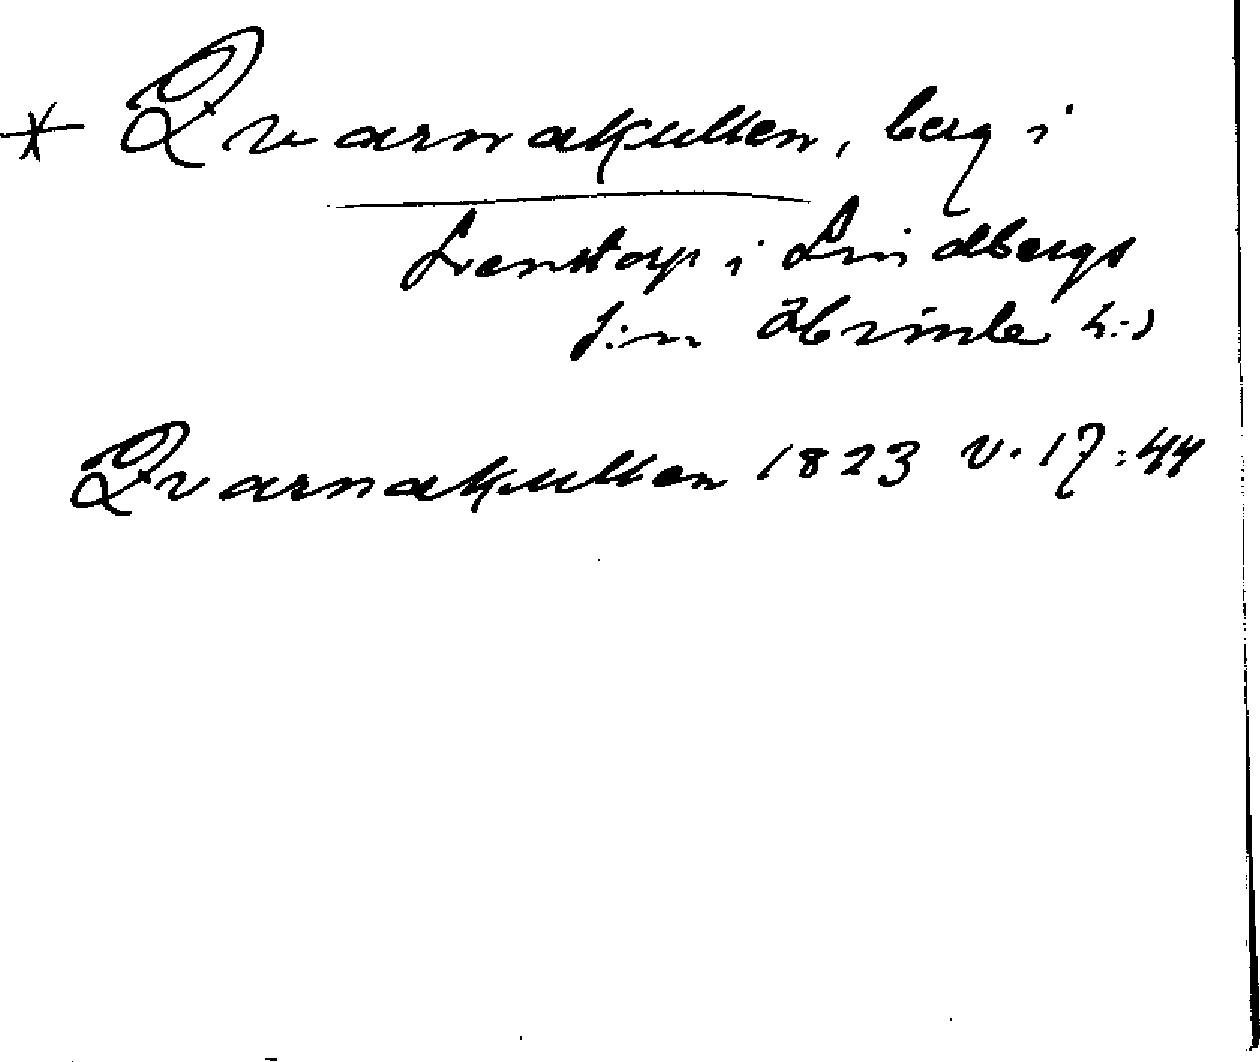 * Qvarnakullen, berg i
Svenstorp i Lindbergs
s:n Himle h:d
Qvarnakullen 1823 v. 17:44